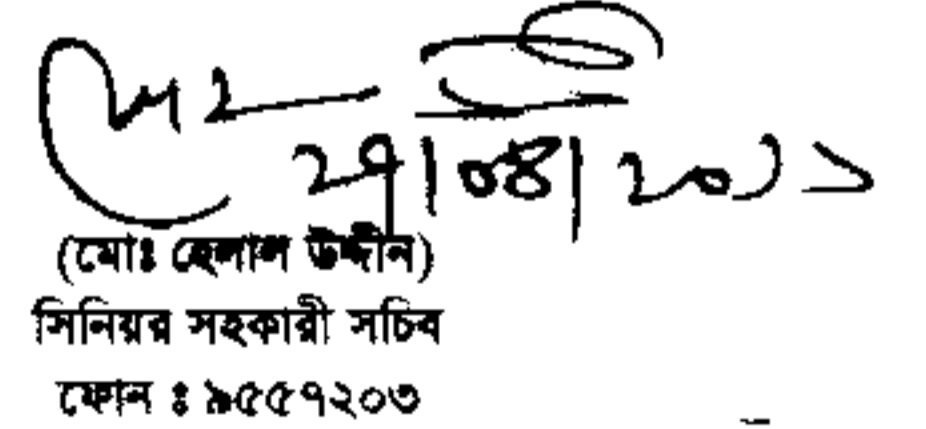 ২৭/০৪/২০১১
(মোঃ হেলাল উদ্দীন)
সিনিয়র সহকারী সচিব
ফোন ঃ ৯৫৫৭২০৩